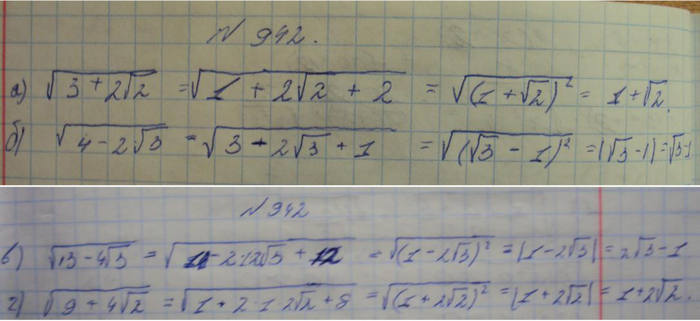 N 942.
а) √(3 + 2√2) = √(1 + 2√2 + 2) = √((1 + √2)²) = 1 + √2.
б) √(4 - 2√3) = √(3 - 2√3 + 1) = √((√3 - 1)²) = |√3 - 1| = √3-1
N 942
в) √(13 - 4√3) = √(1 - 2·1·2√3 + 12) = √((1 - 2√3)²) = |1 - 2√3| = 2√3 - 1
г) √(9 + 4√2) = √(1 + 2·1·2√2 + 8) = √((1 + 2√2)²) = |1 + 2√2| = 1 + 2√2.